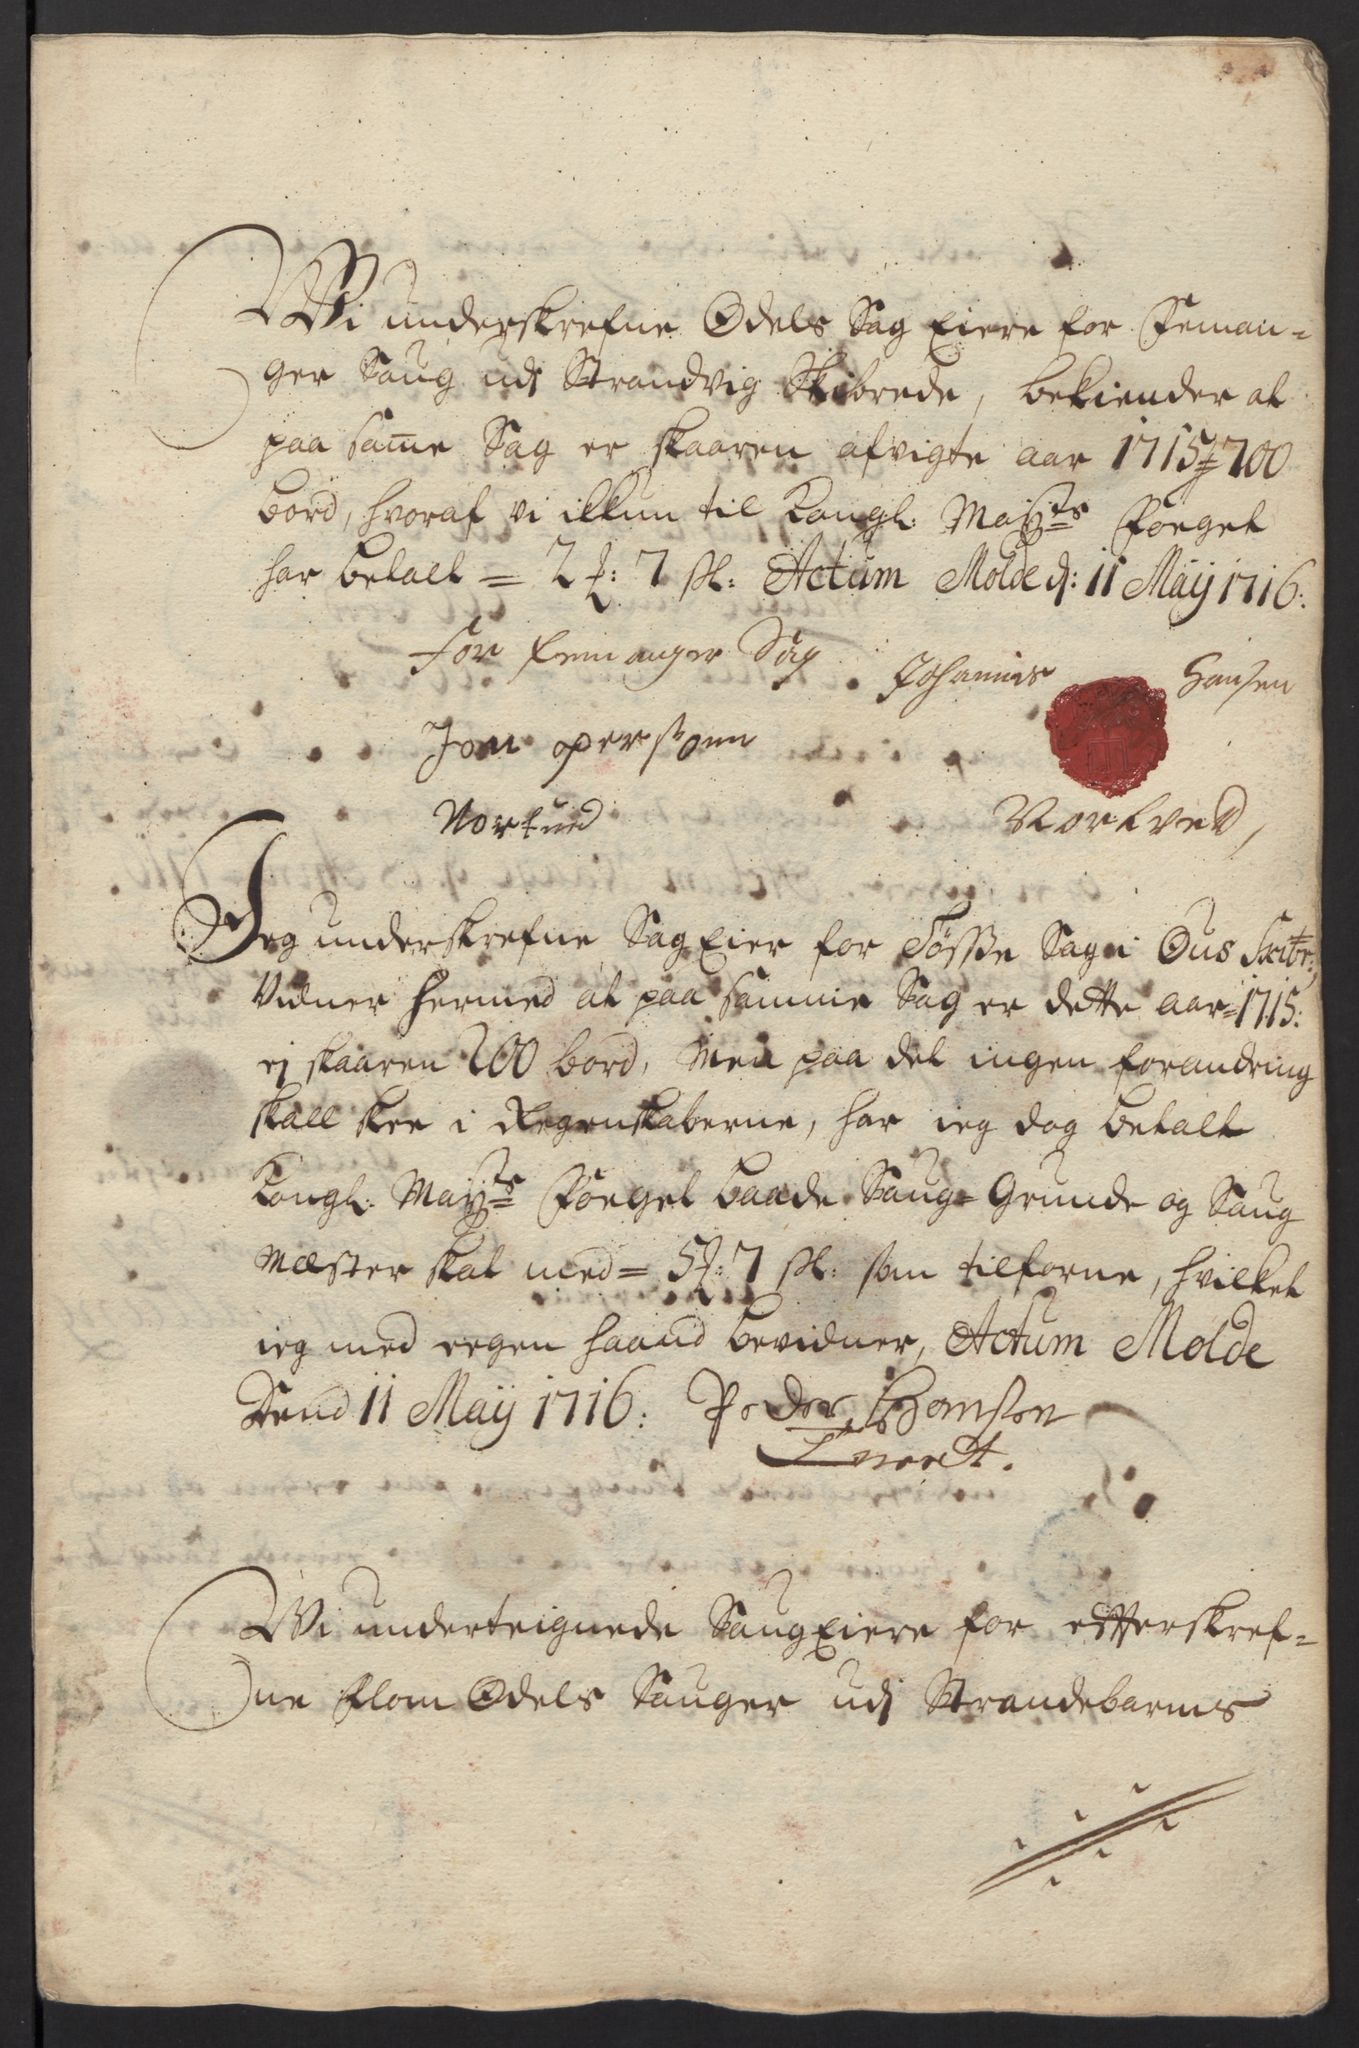 Wi underskrefne Odels Sag Eiere for Feman-
ger Saug udj Strandvig Skibrede, bekiender at
paa same Sag er skaaren afvigte aar 1715 = 700
bord, hvoraf vi ickun til Kongl: May:ts Foeget
har betalt = 2 : 7 sk: Actum Molde d: 11 Maij 1716:
For femanger Sag Johannis Hansen
Jon opersonn
Nortued Nortved,
Jeg underskrefne Sag Eier for Tøsse Sag i Ous Skibr:
Vidner hermed at paa samme Sag er dette aar = 1715:
ej skaaren 200 bord, Men paa det ingen forandring
skall skee i Regenskaberne, har ieg dog betalt
Kongl: Maij:ts Foeget baade Saug= Grunde og Saug
Mæster skat med = 5 : 7 sk: som tilforne, hvilket
ieg med eegen haand bevidner, Actum Molde
Dend 11 Maij 1716: Peder
Wi underteignede Saug Eiere for efterskref-
ne flom Odels Sauger udj Strandebarms